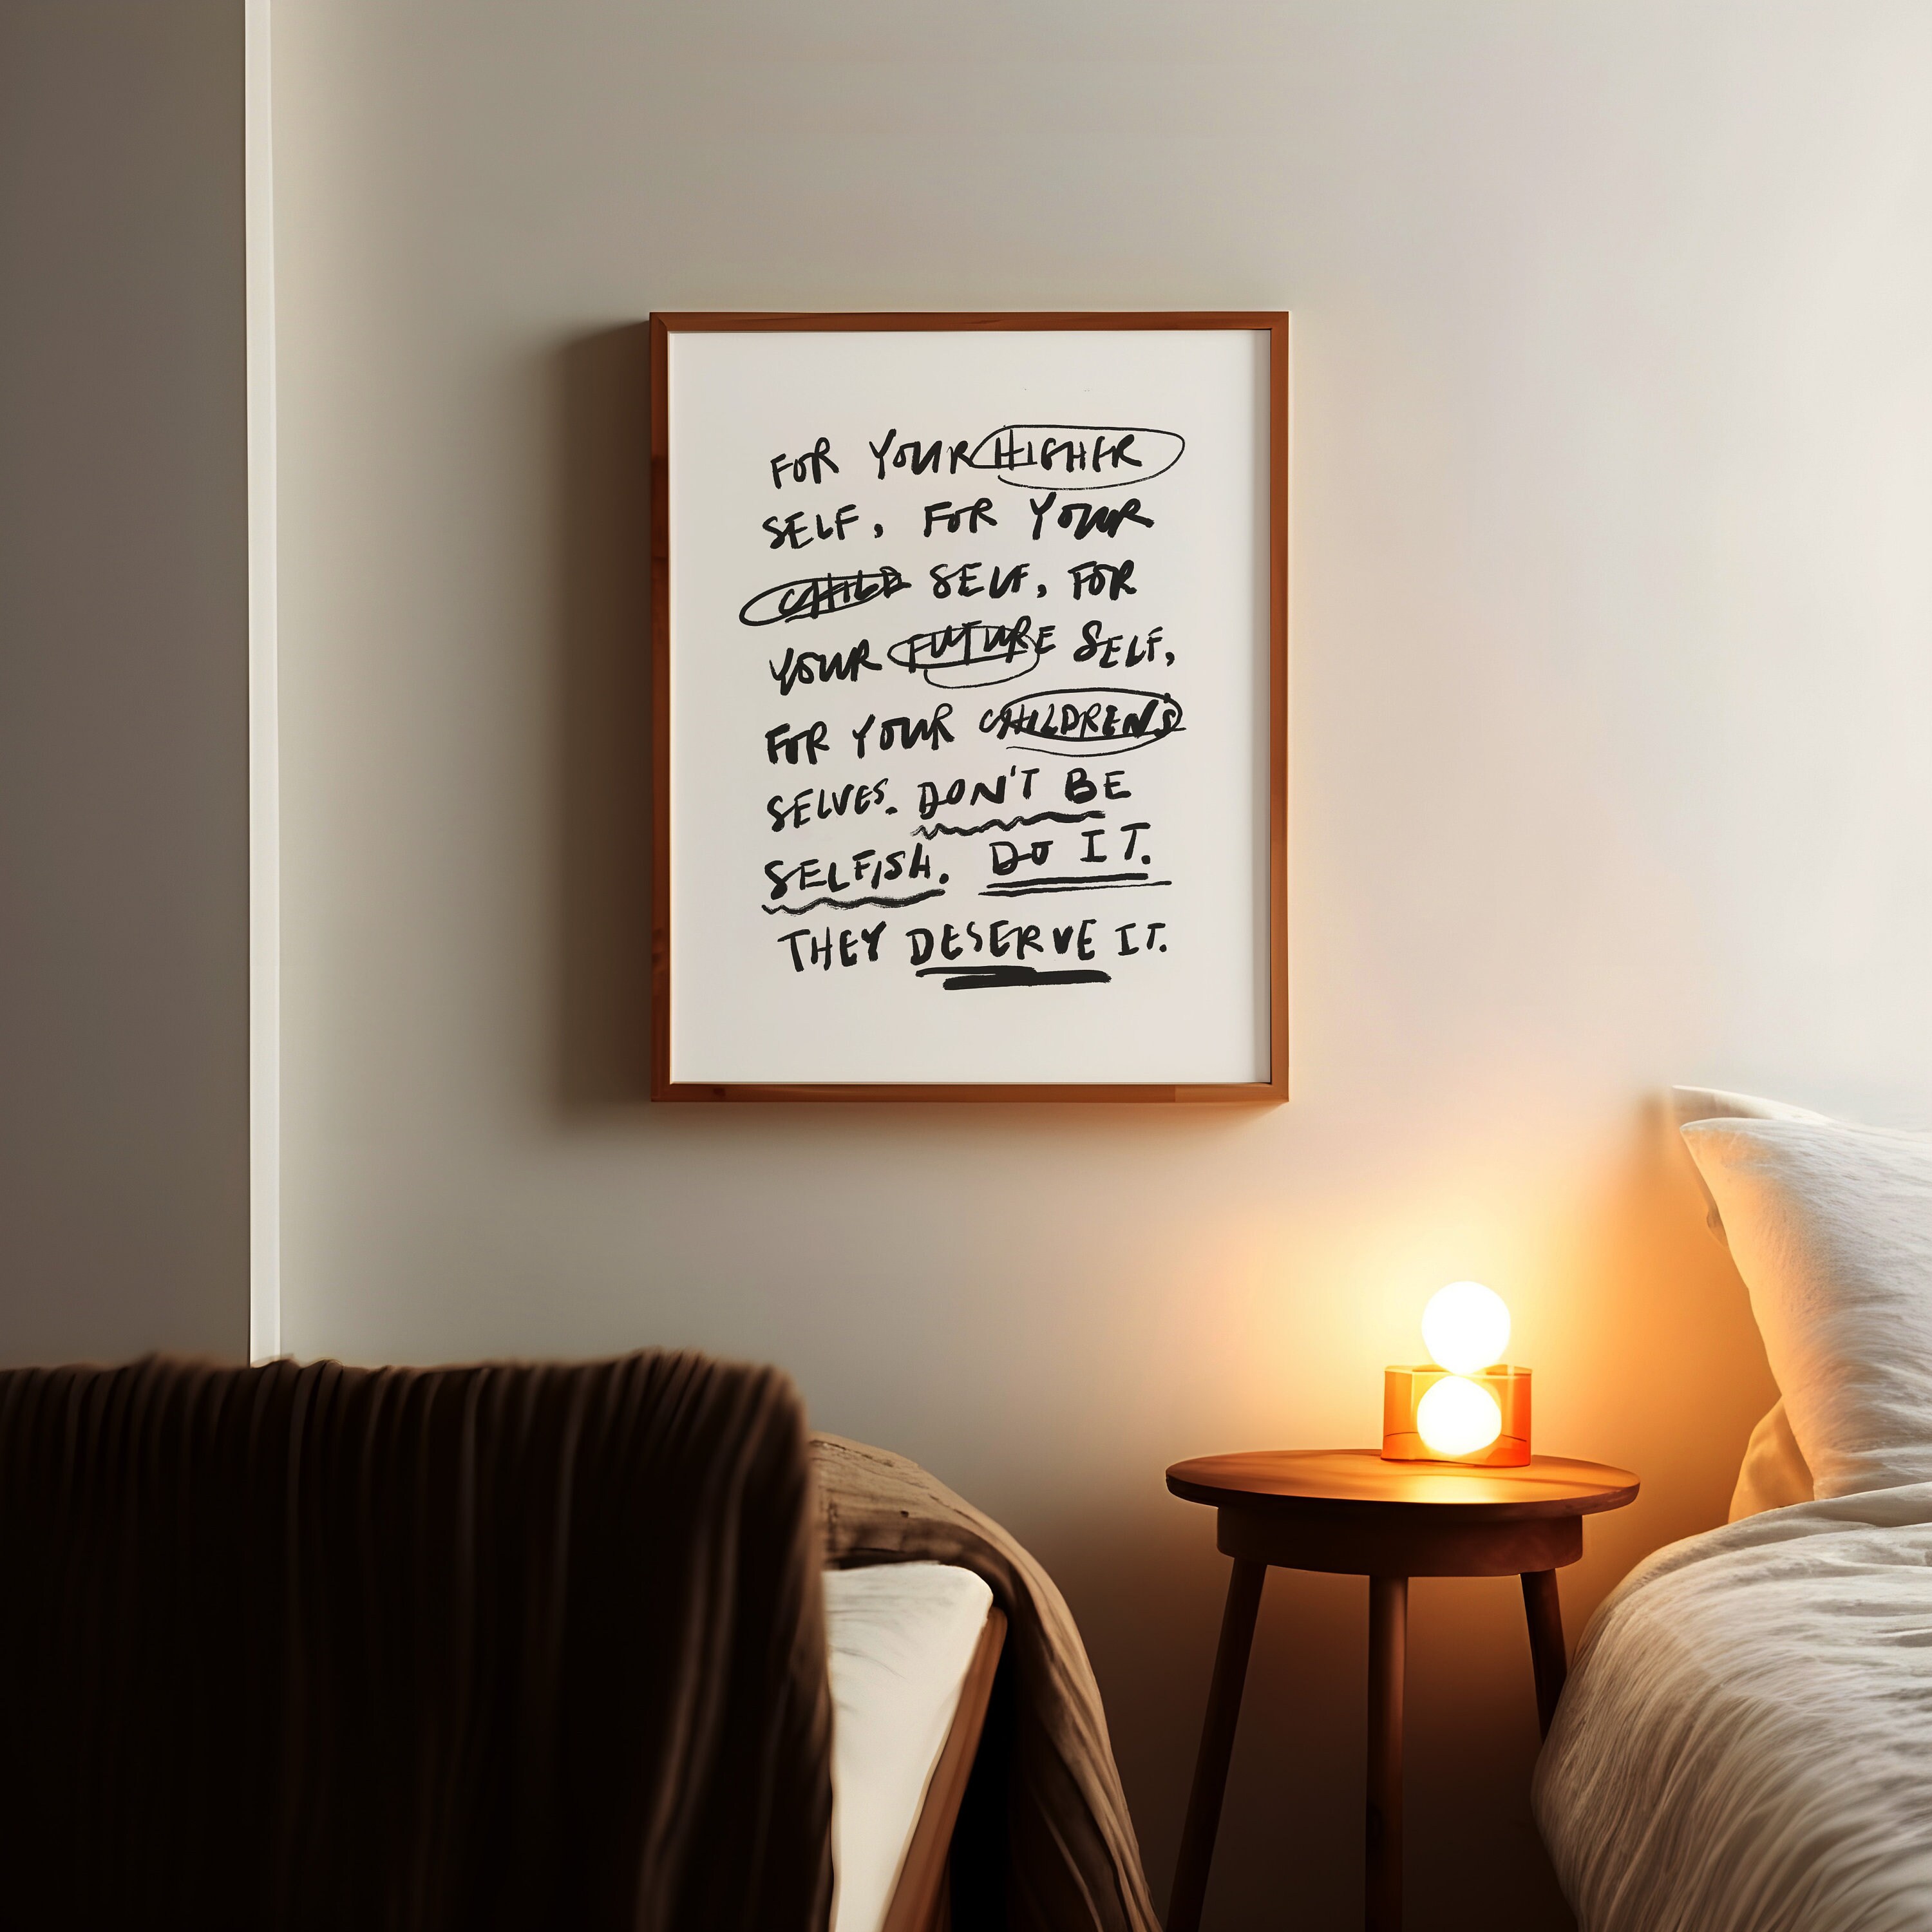 FOR YOUR HIGHER
SELF, FOR YOUR
CHILD SELF, FOR
YOUR FUTURE SELF,
FOR YOUR CHILDRENS
SELVES. DON'T BE
SELFISH. DO IT.
THEY DESERVE IT.